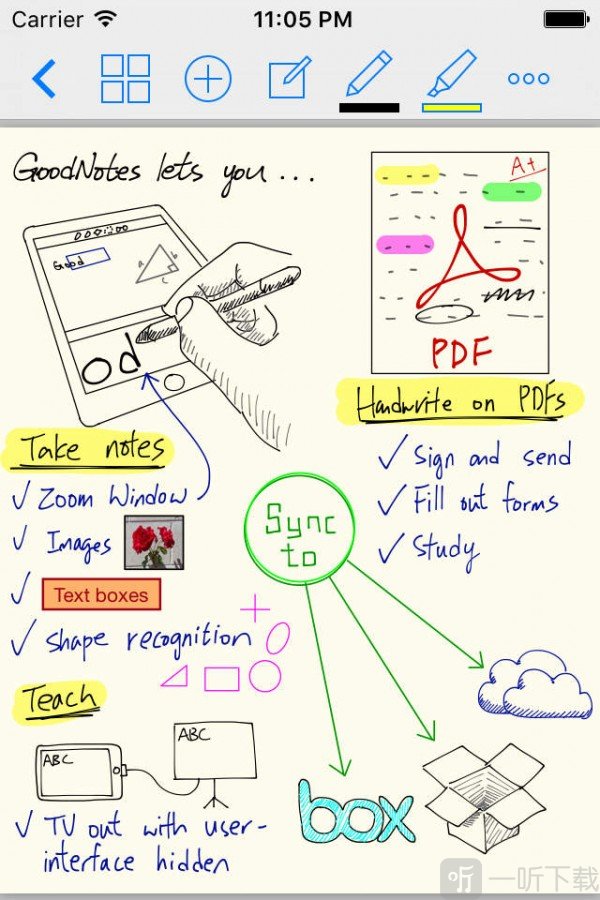 Carrier 11:05 PM
GoodNotes lets you ...
Good
a
b
c
od
A+
PDF
Handwrite on PDFs
Sign and send
Fill out forms
Study
Take notes
Zoom Window
Images
Text boxes
shape recognition
Sync
to
Teach
ABC
ABC
TV out with user-
interface hidden
box
听 一听下载